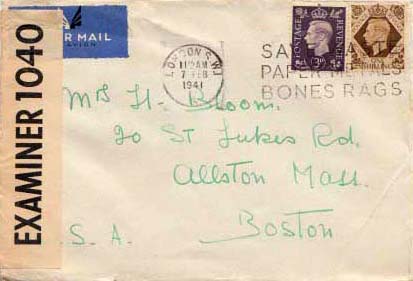 EXAMINER 1040
R MAIL
AVION
LONDON S.W.1
AM
7 FEB
1941
SA
PAPER METALS
BONES RAGS
POSTAGE REVENUE
3D
Mrs H. Bloom.
20 St Lukes Rd.
Allston Mass.
Boston
.S.A.